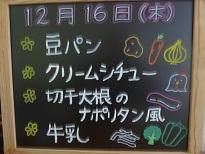 12月16日(木)
豆パン
クリームシチュー
切干大根の
ナポリタン風
牛乳